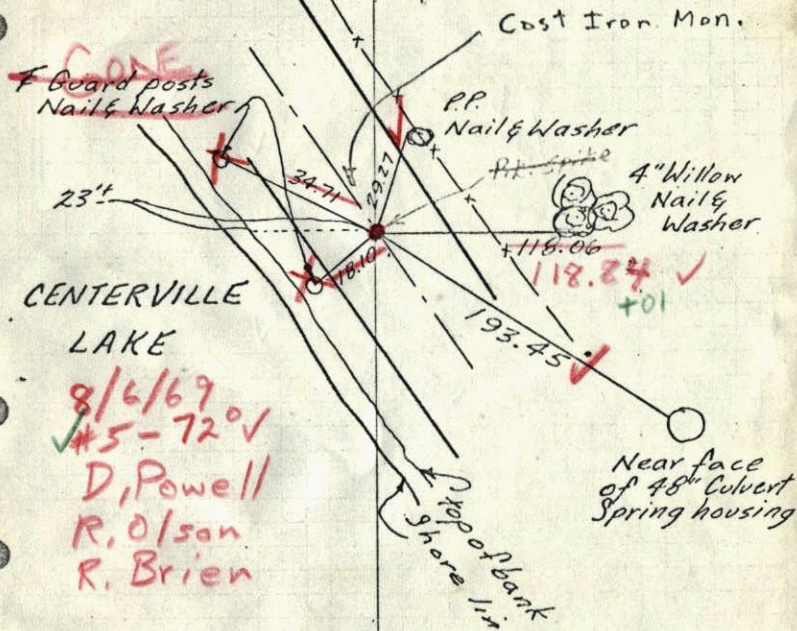 Cost Iron Mon.
GONE
Guard posts
Nail & Washer
P.P.
Nail & Washer
P.K. Spike
4" Willow
Nail &
Washer
23'±
34.71
29.27
18.10
118.06
118.84 ✓
+01
193.45 ✓
CENTERVILLE
LAKE
8/6/69
✓ #5 - 72° ✓
D. Powell
R. Olson
R. Brien
Near face
of 48" Culvert
Spring housing
top of bank
Shore lin